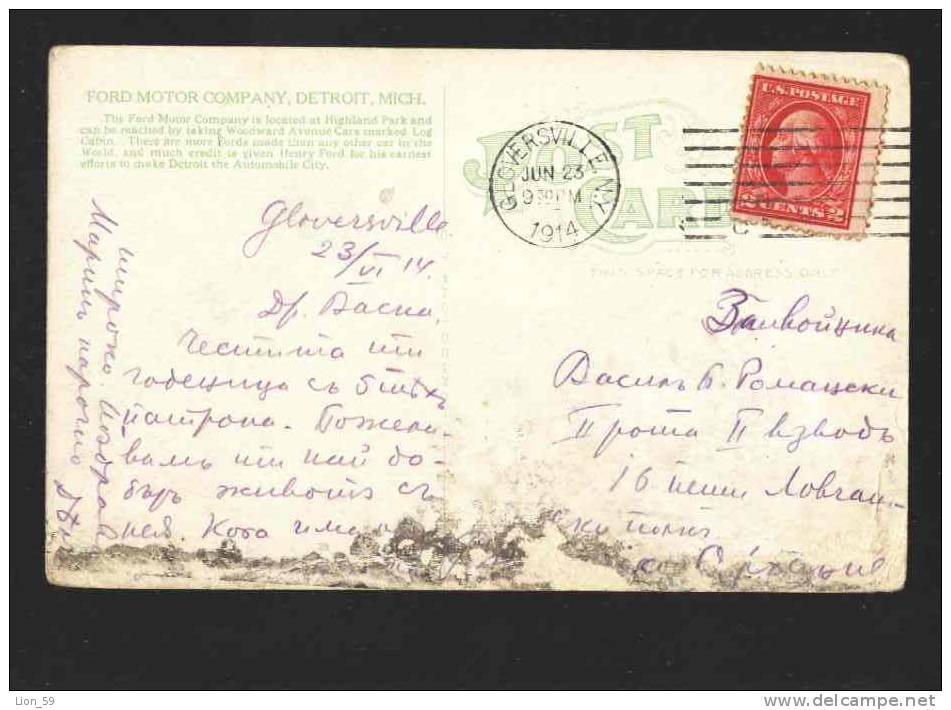 FORD MOTOR COMPANY, DETROIT, MICH.
The Ford Motor Company is located at Highland Park and
can be reached by taking Woodward Avenue Cars marked Log
Cabin. There are more Fords made than any other car in the
World, and much credit is given Henry Ford for his earnest
efforts to make Detroit the Automobile City.
POST
CARD
THIS SPACE FOR ADDRESS ONLY
GLOVERSVILLE N.Y.
JUN 23
9 30 PM
1914
U.S. POSTAGE
2 CENTS 2
Gloversville
23/VI 14.
Др. Васка,
Честита ти
годеница съ
патрона. Пожела-
вамъ ти най до-
бъръ животъ съ
нея. Кога има
широко. Поздрави
Василъ Б. Романски
II рота II взводъ
16 пеши Ловчан-
ски полкъ
с. Орхание
Lion_59
www.delcampe.net